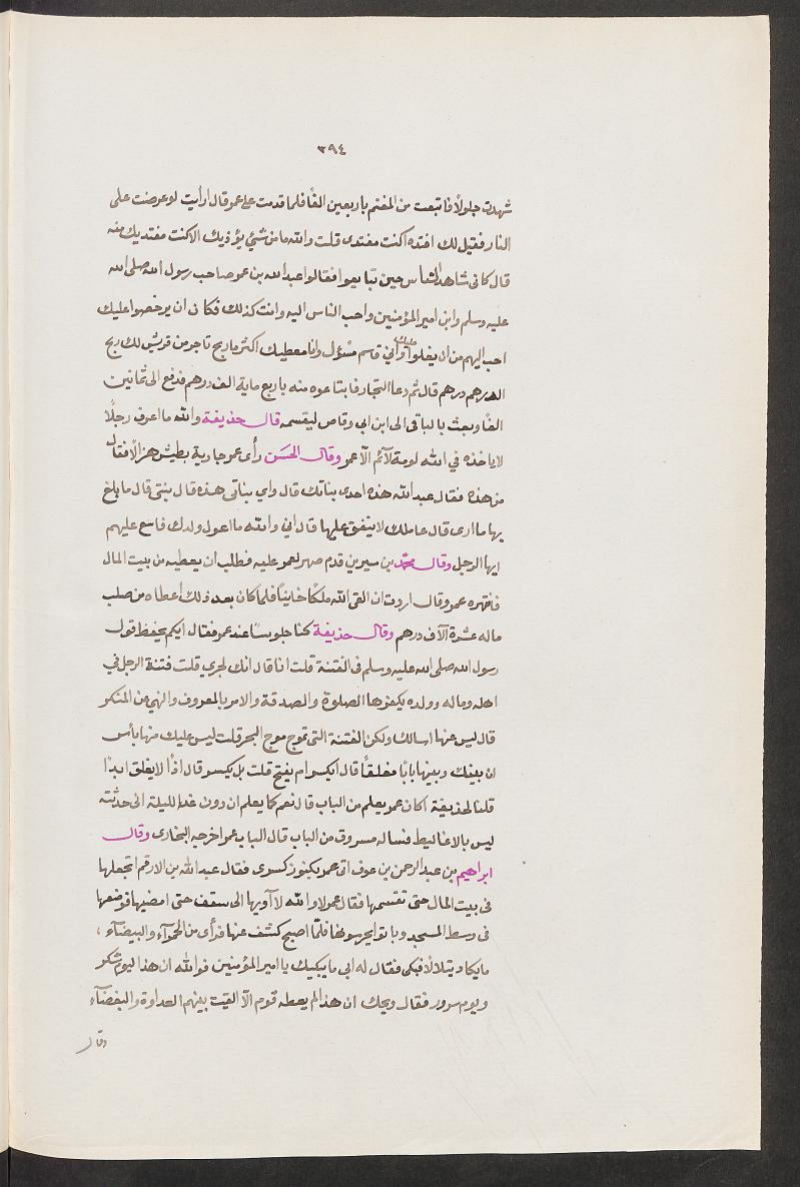 ٣٩٤
شهدت جلولآ فابتعت من المغنم باربعين الفًا فلما قدمت على عمر قال ارأيت لو عرضت على
النار فقيل لك افتده اكنت مفتدى قلت والله ما من شئ يؤذيك الا كنت مفتديك منه
قال كانى شاهد الناس حين تبايعوا فقالوا عبد الله بن عمر صاحب رسول الله صلى الله
عليه وسلم وابن امير المؤمنين واحب الناس اليه وانت كذلك فكان ان يرخصوا عليك
احب اليهم من ان يغلوا عليك وانى قاسم مسؤل وانا معطيك اكثر ما ربح تاجر من قريش لك ربح
الدرهم درهم قال ثم دعا التجار فابتاعوه منه باربع ماية الف درهم فدفع الى ثمانين
الفًا وبعث بالباقى الى ابن ابى وقاص ليقسمه قال حذيفة والله ما اعرف رجلًا
لا ياخذه في الله لومة لآئم الا عمر وقال الحسن رأى عمر جارية بطيش هزالًا فقال
من هذه فقال عبد الله هذه احدى بناتك قال واي بناتى هذه قال بنتى قال ما بلغ
بها ما ارى قال عاملك لا ينفق عليها قال انى والله ما اعول ولدك فاسع عليهم
ايها الرجل وقال محمد بن سيرين قدم صهر لعمر عليه فطلب ان يعطيه من بيت المال
فانتهره عمر وقال اردت ان القى الله ملكًا خاينًا فلما كان بعد ذلك اعطاه من صلب
ماله عشرة آلاف درهم وقال حذيفة كنا جلوسًا عند عمر فقال ايكم يحفظ قول
رسول الله صلى الله عليه وسلم فى الفتنة قلت انا قال انك لجرى قلت فتنة الرجل في
اهله وماله وولده يكفرها الصلوة والصدقة والامر بالمعروف والنهي عن المنكر
قال ليس عنها اسالك ولكن الفتنة التى تموج موج البحر قلت ليس عليك منها بأس
ان بينك وبينها بابًا مغلقًا قال ايكسر ام يفتح قلت بل يكسر قال اذًا لا يغلق ابدًا
قلنا لحذيفة اكان عمر يعلم من الباب قال نعم كما يعلم ان دون غد الليلة انى حدثته
ليس بالاغاليط فساله مسروق من الباب قال الباب عمر اخرجه البخارى وقال
ابراهيم بن عبد الرحمن بن عوف اتى عمر بكنوز كسرى فقال عبد الله بن الارقم اتجعلها
فى بيت المال حتى تقسمها فقال عمر لا والله لا آويها الى سقف حتى امضيها فوضعها
فى وسط المسجد وباتوا يحرسونها فلمّا اصبح كشف عنها فرأى من الحمرآء والبيضآء
ما يكاد يتلالأ فبكى فقال له ابى ما يبكيك يا امير المؤمنين فوالله ان هذا ليوم شكر
ويوم سرور فقال ويحك ان هذا لم يعطه قوم الّا القيت بينهم العداوة والبغضآء
وقال